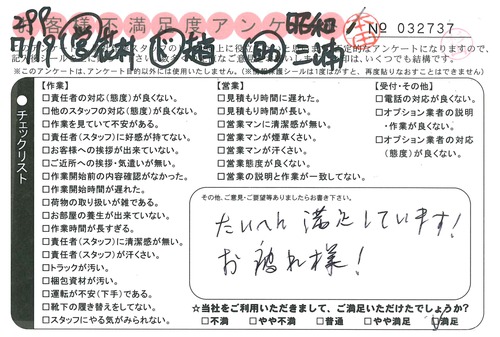 お客様不満足度アンケート
昭和
№ 032737
299
7/19
※このアンケートは、アンケート目的以外には使用いたしません。
チェックリスト
【作業】
□責任者の対応(態度)が良くない。
□他のスタッフの対応(態度)が良くない。
□作業を見ていて不安がある。
□責任者(スタッフ)に好感が持てない。
□お客様への挨拶が出来ていない。
□ご近所への挨拶・気遣いが無い。
□作業開始前の内容確認がなかった。
□作業開始時間が遅れた。
□荷物の取り扱いが雑である。
□お部屋の養生が出来ていない。
□作業時間が長すぎる。
□責任者(スタッフ)に清潔感が無い。
□責任者(スタッフ)が汗くさい。
□トラックが汚い。
□梱包資材が汚い。
□運転が不安(下手)である。
□靴下の履き替えをしてない。
□スタッフにやる気がみられない。
【営業】
□見積もり時間に遅れた。
□見積もり時間が長い。
□営業マンに清潔感が無い。
□営業マンが煙草くさい。
□営業マンが汗くさい。
□営業態度が良くない。
□営業の説明と作業が一致してない。
【受付・その他】
□電話の対応が良くない。
□オプション業者の説明
・作業が良くない。
□オプション業者の対応
(態度)が良くない。
その他、ご意見・ご要望等ありましたらお書き下さい。
たいへん満足しています!
お疲れ様!
☆当社をご利用いただきまして、ご満足いただけたでしょうか?
□不満 □やや不満 □普通 □やや満足 □満足